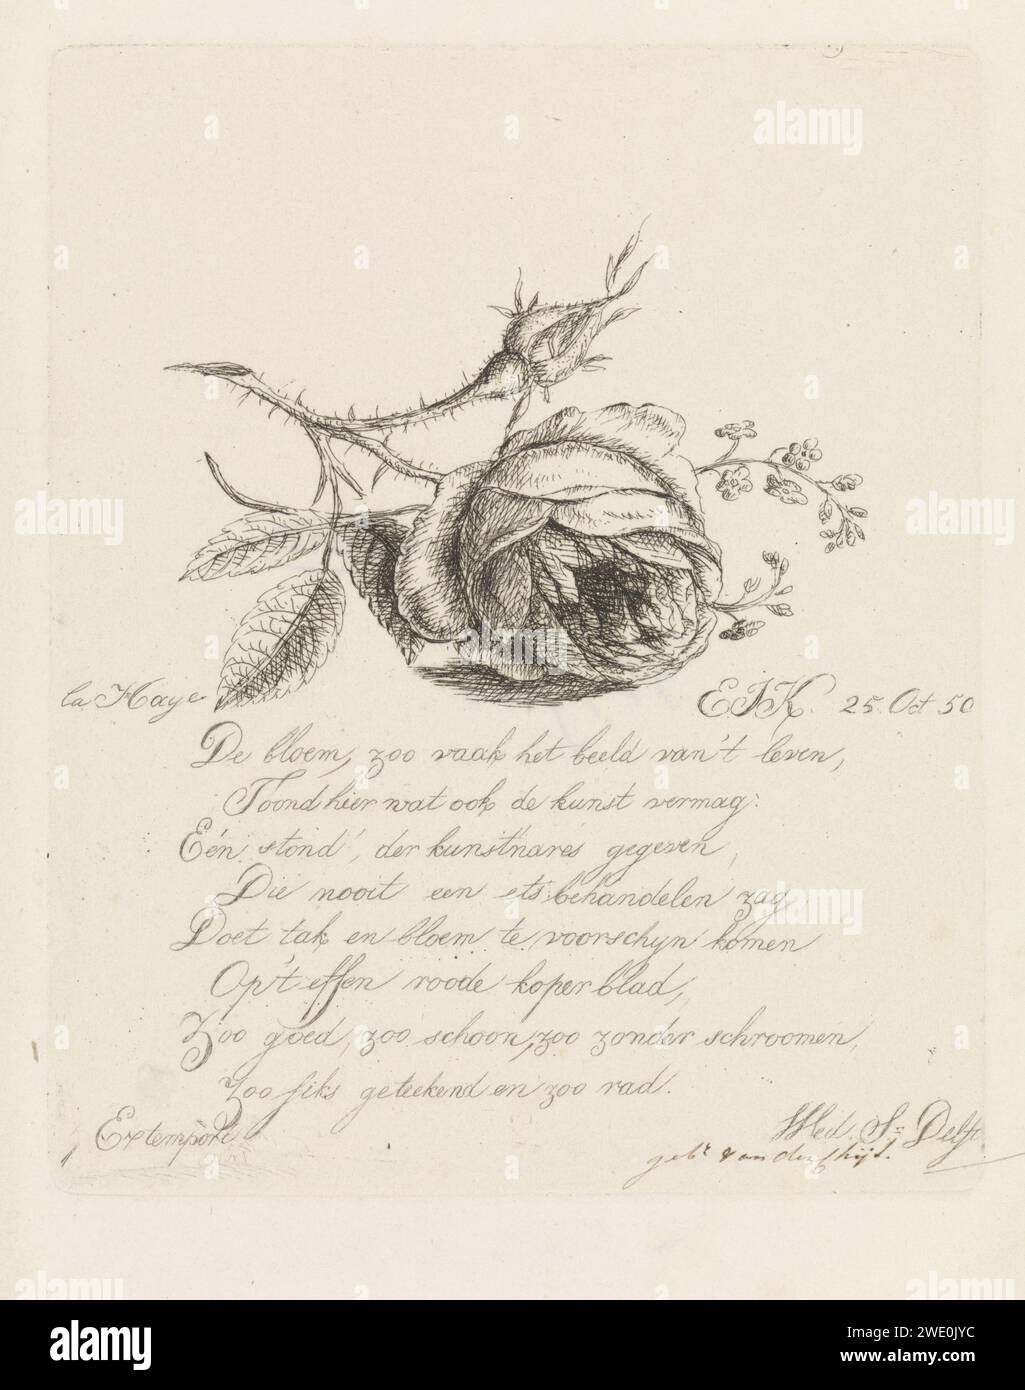 la Haye
EJK. 25. Oct 50
De bloem, zoo vaak het beeld van't leven,
Toond hier wat ook de kunst vermag:
Eén stond', der kunstnares gegeven,
Die nooit een ets behandelen zag
Doet tak en bloem te voorschyn komen
Op't effen roode koper blad,
Zoo goed, zoo schoon, zoo zonder schroomen,
Zoo fiks geteekend en zoo rad.
Extempore
Delft
alamy
Image ID: 2WE0JYC
www.alamy.com